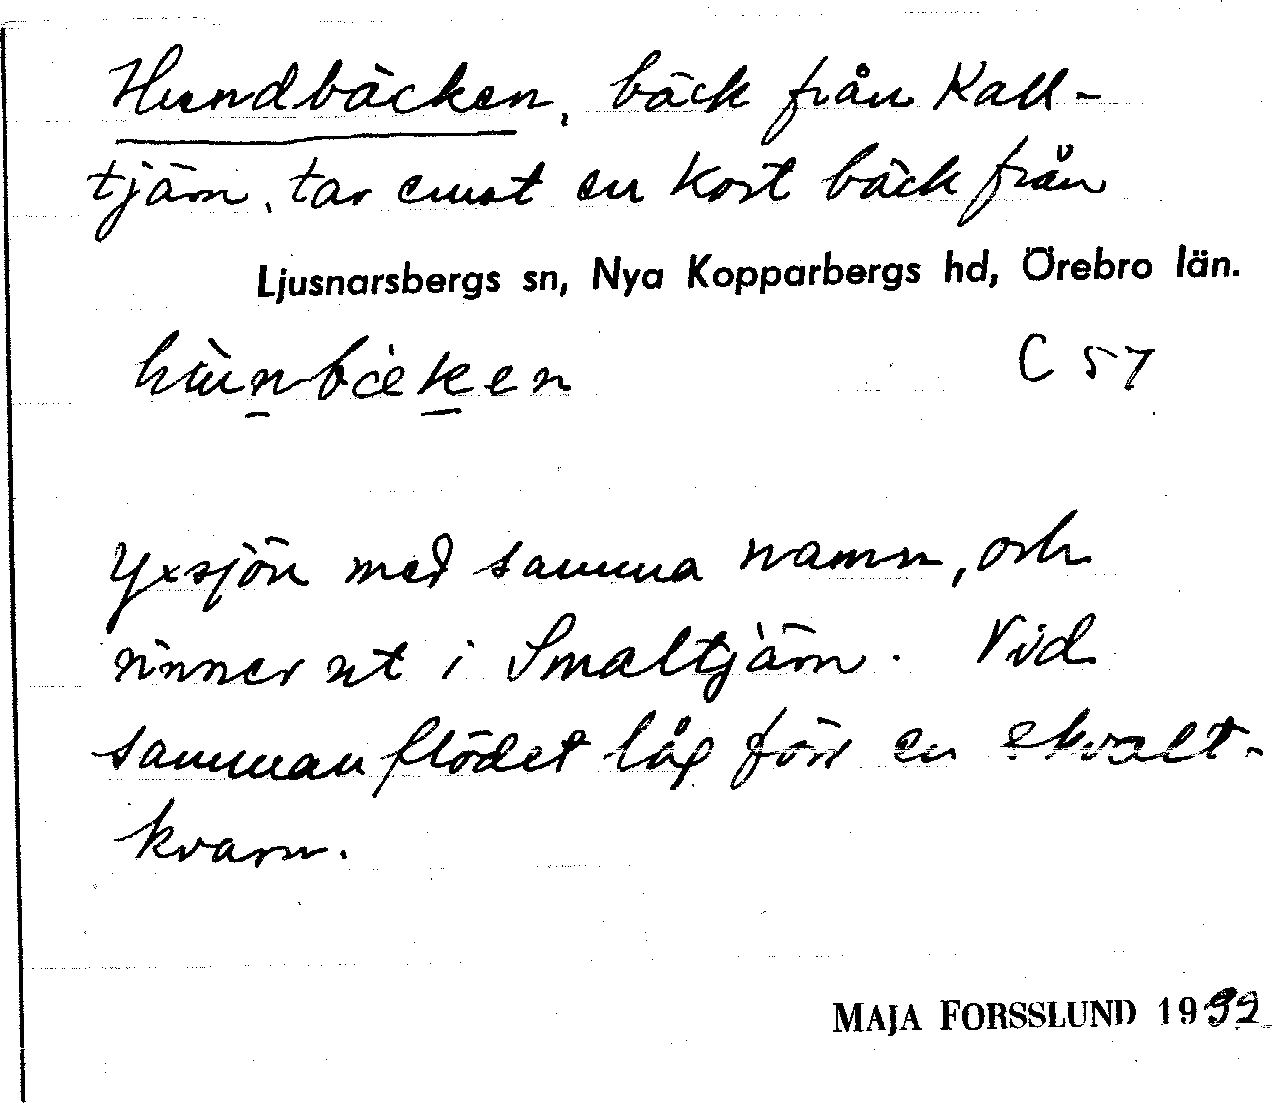 Hundbäcken, bäck från Kall-
tjärn, tar emot en kort bäck från
Ljusnarsbergs sn, Nya Kopparbergs hd, Örebro län.
C 57
Yxsjön med samma namn, och
rinner ut i Smaltjärn. Vid
sammanflödet låg förr en skvalt-
kvarn.
MAJA FORSSLUND 19